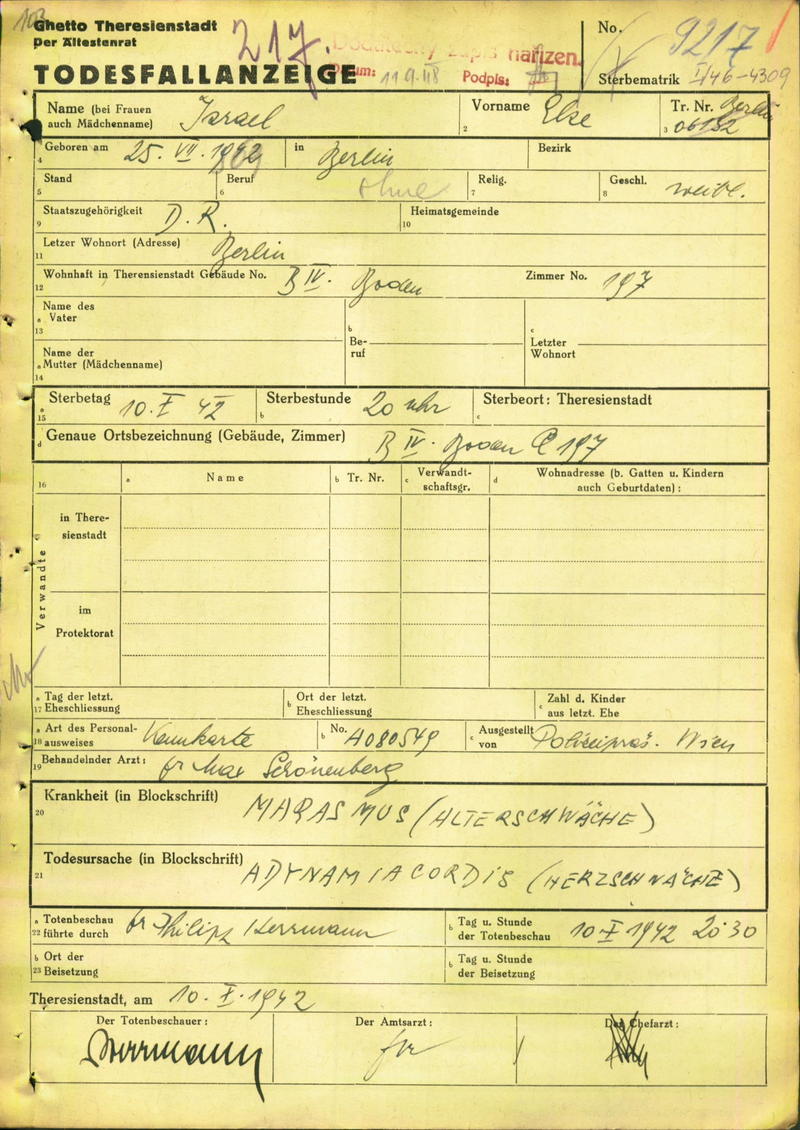 103
Ghetto Theresienstadt
Per Ältestenrat
TODESFALLANZEIGE
217.
Dodatečný zápis nařízen.
Datum: 11.9.48 Podpis:
No. 9217
Sterbematrik I/46-4309
Name (bei Frauen auch Mädchenname) Israel
Vorname Else
2
Tr. Nr. Berlin
3 06132
Geboren am 25. VII.
4
in Berlin
Bezirk
Stand
5
Beruf ohne
6
Relig.
7
Geschl. weibl.
8
Staatszugehörigkeit D. R.
9
Heimatsgemeinde
10
Letzer Wohnort (Adresse) Berlin
11
Wohnhaft in Theresienstadt Gebäude No. B IV. Boden
12
Zimmer No. 197
Name des
a Vater
13
b
Be-
ruf
c
Letzter
Wohnort
Name der
a Mutter (Mädchenname)
14
a Sterbetag 10. X 42
15
Sterbestunde 20 Uhr
b
Sterbeort: Theresienstadt
c
d Genaue Ortsbezeichnung (Gebäude, Zimmer) B IV. Boden C 197
16
a Name
b Tr. Nr.
c Verwandt-
schaftsgr.
d Wohnadresse (b. Gatten u. Kindern
auch Geburtdaten):
Verwandte
in There-
sienstadt
im
Protektorat
a Tag der letzt.
17 Eheschliessung
b Ort der letzt.
Eheschliessung
c Zahl d. Kinder
aus letzt. Ehe
a Art des Personal-
18 ausweises Kennkarte
b No. A080549
c Ausgestellt
von Polizeipräs. Wien
19 Behandelnder Arzt: Dr Max Schönenberg
Krankheit (in Blockschrift) MARASMUS (ALTERSCHWÄCHE)
20
Todesursache (in Blockschrift) ADYNAMIA CORDIS (HERZSCHWÄCHE)
21
a Totenbeschau
22 führte durch Dr Philipp Herrmann
b Tag u. Stunde
der Totenbeschau 10. X 1942 20.30
b Ort der
23 Beisetzung
b Tag u. Stunde
der Beisetzung
Theresienstadt, am 10. X. 1942
Der Totenbeschauer:
Der Amtsarzt:
Der Chefarzt:
Herrmann